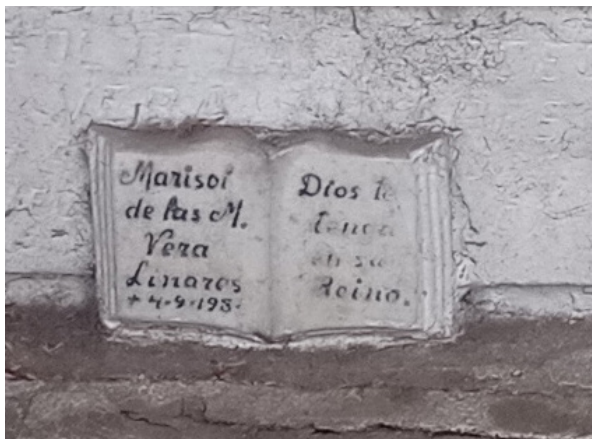 Marisol
de las M.
Vera
Linares
Dios te
tenga
en su
Reino.